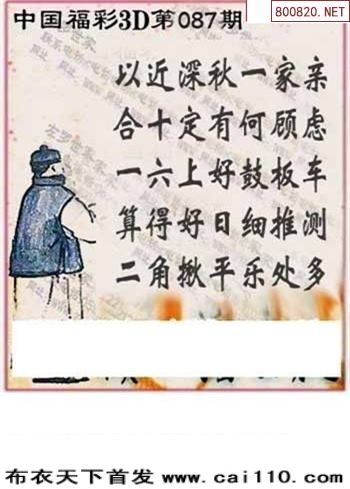 中国福彩3D第087期
800820.NET
以近深秋一家亲
合十定有何顾虑
一六上好鼓板车
算得好日细推测
二角揪平乐处多
布衣天下首发 www.cai110.com